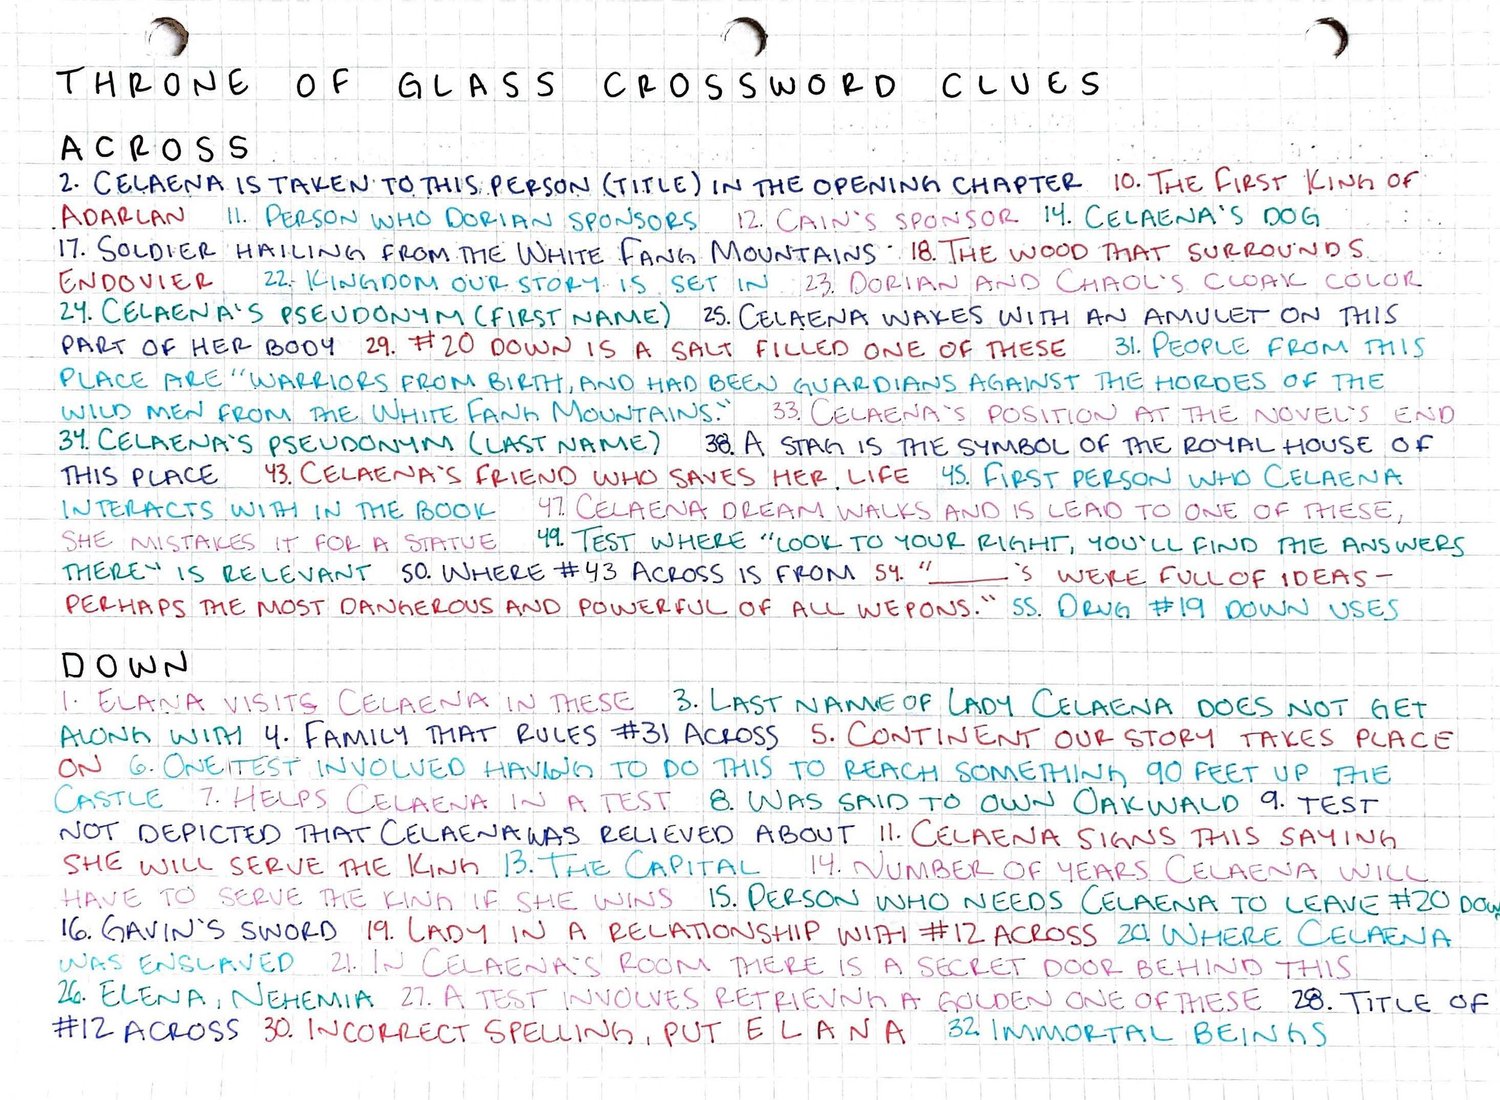 THRONE OF GLASS CROSSWORD CLUES
ACROSS
2. CELAENA IS TAKEN TO THIS PERSON (TITLE) IN THE OPENING CHAPTER 10. THE FIRST KING OF
ADARLAN 11. PERSON WHO DORIAN SPONSORS 12. CAIN'S SPONSOR 14. CELAENA'S DOG
17. SOLDIER HAILING FROM THE WHITE FANG MOUNTAINS 18. THE WOOD THAT SURROUNDS
ENDOVIER 22. KINGDOM OUR STORY IS SET IN 23. DORIAN AND CHAOL'S CLOAK COLOR
24. CELAENA'S PSEUDONYM (FIRST NAME) 25. CELAENA WAKES WITH AN AMULET ON THIS
PART OF HER BODY 29. #20 DOWN IS A SALT FILLED ONE OF THESE 31. PEOPLE FROM THIS
PLACE ARE "WARRIORS FROM BIRTH, AND HAD BEEN GUARDIANS AGAINST THE HORDES OF THE
WILD MEN FROM THE WHITE FANG MOUNTAINS." 33. CELAENA'S POSITION AT THE NOVEL'S END
34. CELAENA'S PSEUDONYM (LAST NAME) 38. A STAG IS THE SYMBOL OF THE ROYAL HOUSE OF
THIS PLACE 43. CELAENA'S FRIEND WHO SAVES HER LIFE 45. FIRST PERSON WHO CELAENA
INTERACTS WITH IN THE BOOK 47. CELAENA DREAM WALKS AND IS LEAD TO ONE OF THESE,
SHE MISTAKES IT FOR A STATUE 49. TEST WHERE "LOOK TO YOUR RIGHT, YOU'LL FIND THE ANSWERS
THERE" IS RELEVANT 50. WHERE #43 ACROSS IS FROM 54. "______'S WERE FULL OF IDEAS -
PERHAPS THE MOST DANGEROUS AND POWERFUL OF ALL WEPONS." 55. DRUG #19 DOWN USES
DOWN
1. ELANA VISITS CELAENA IN THESE 3. LAST NAME OF LADY CELAENA DOES NOT GET
ALONG WITH 4. FAMILY THAT RULES #31 ACROSS 5. CONTINENT OUR STORY TAKES PLACE
ON 6. ONE TEST INVOLVED HAVING TO DO THIS TO REACH SOMETHING 90 FEET UP THE
CASTLE 7. HELPS CELAENA IN A TEST 8. WAS SAID TO OWN OAKWALD 9. TEST
NOT DEPICTED THAT CELAENA WAS RELIEVED ABOUT 11. CELAENA SIGNS THIS SAYING
SHE WILL SERVE THE KING 13. THE CAPITAL 14. NUMBER OF YEARS CELAENA WILL
HAVE TO SERVE THE KING IF SHE WINS 15. PERSON WHO NEEDS CELAENA TO LEAVE #20 DOWN
16. GAVIN'S SWORD 19. LADY IN A RELATIONSHIP WITH #12 ACROSS 20. WHERE CELAENA
WAS ENSLAVED 21. IN CELAENA'S ROOM THERE IS A SECRET DOOR BEHIND THIS
26. ELENA, NEHEMIA 27. A TEST INVOLVES RETRIEVNG A GOLDEN ONE OF THESE 28. TITLE OF
#12 ACROSS 30. INCORRECT SPELLING, PUT ELANA 32. IMMORTAL BEINGS